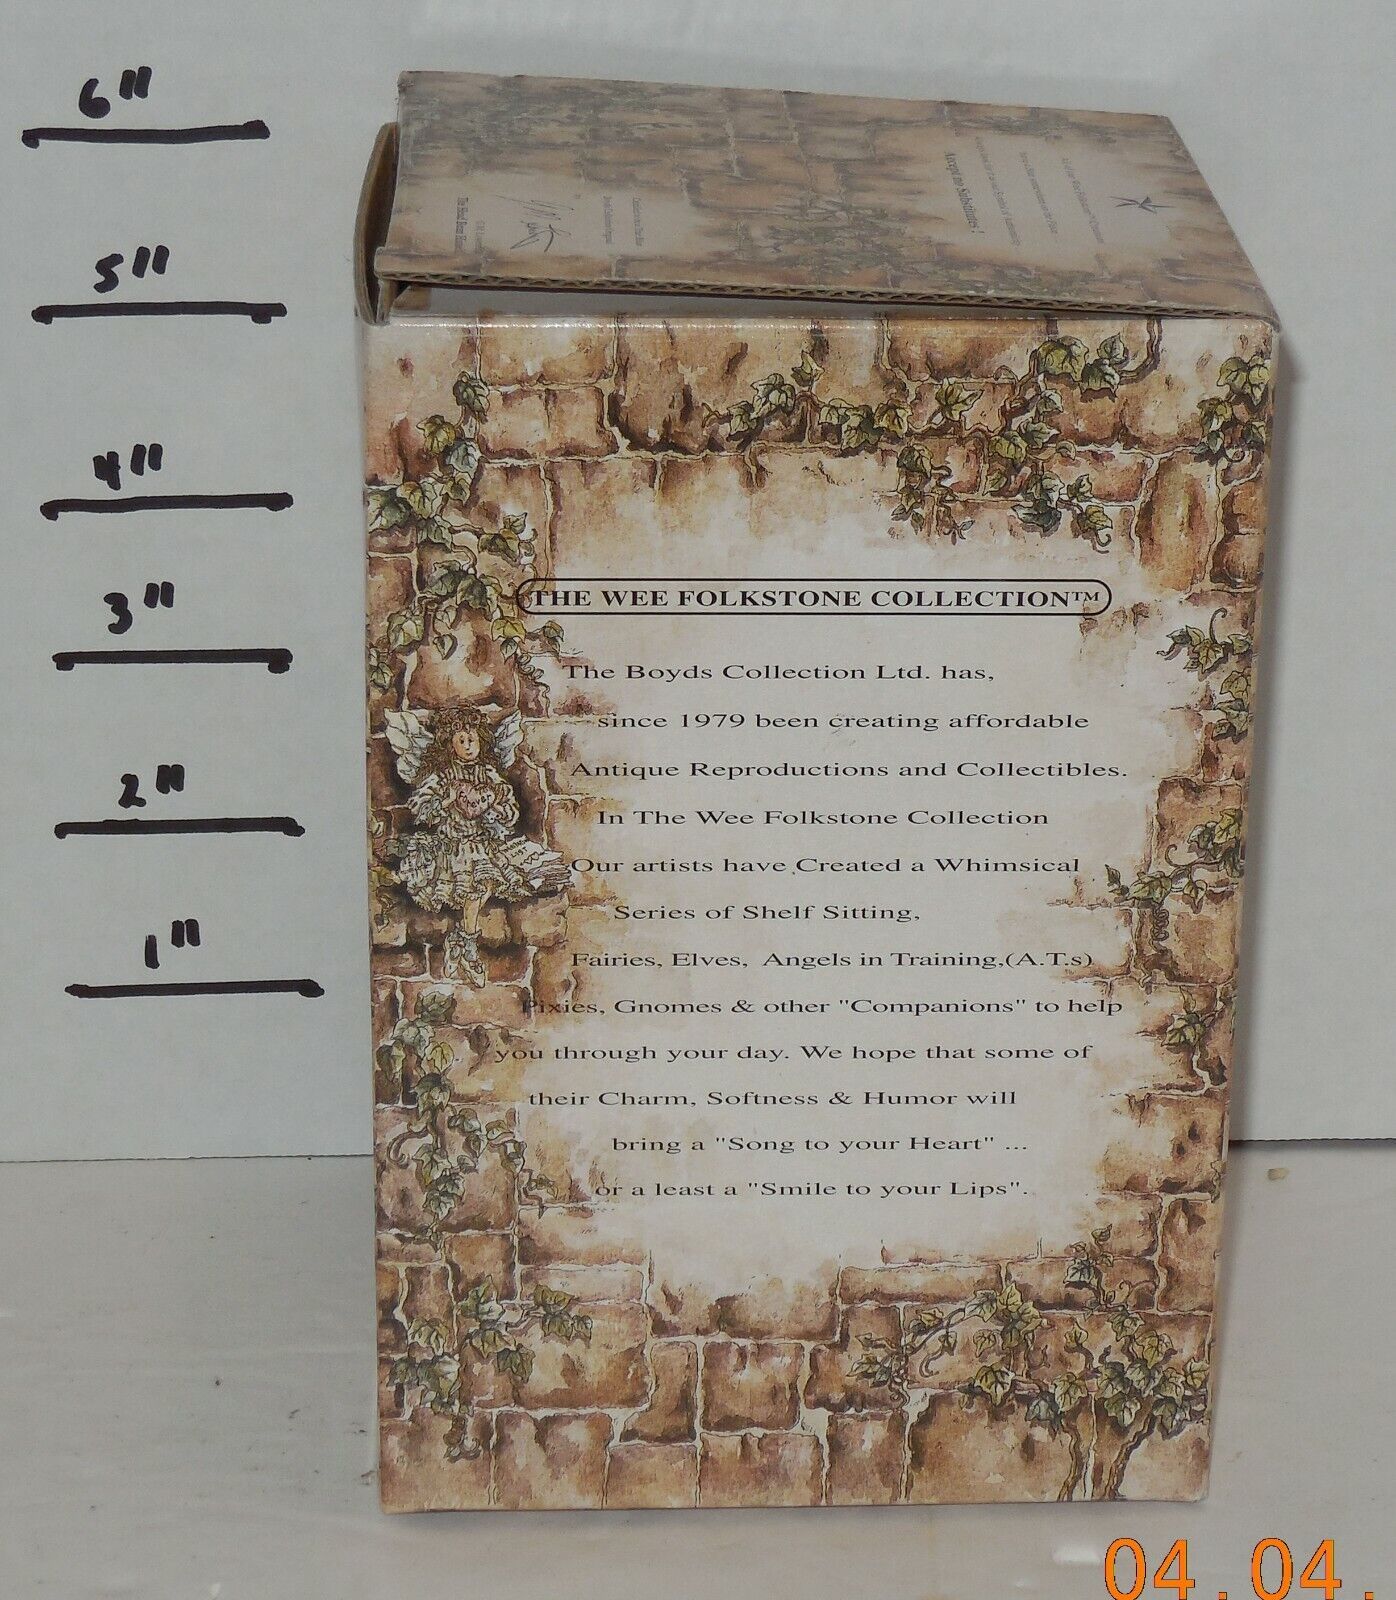 6"
5"
4"
3"
2"
1"
Accept no Substitutes!
THE WEE FOLKSTONE COLLECTION™
The Boyds Collection Ltd. has,
since 1979 been creating affordable
Antique Reproductions and Collectibles.
In The Wee Folkstone Collection
Our artists have Created a Whimsical
Series of Shelf Sitting,
Fairies, Elves, Angels in Training,(A.T.s)
Pixies, Gnomes & other "Companions" to help
you through your day. We hope that some of
their Charm, Softness & Humor will
bring a "Song to your Heart" ...
or a least a "Smile to your Lips".
Forever
04.04.